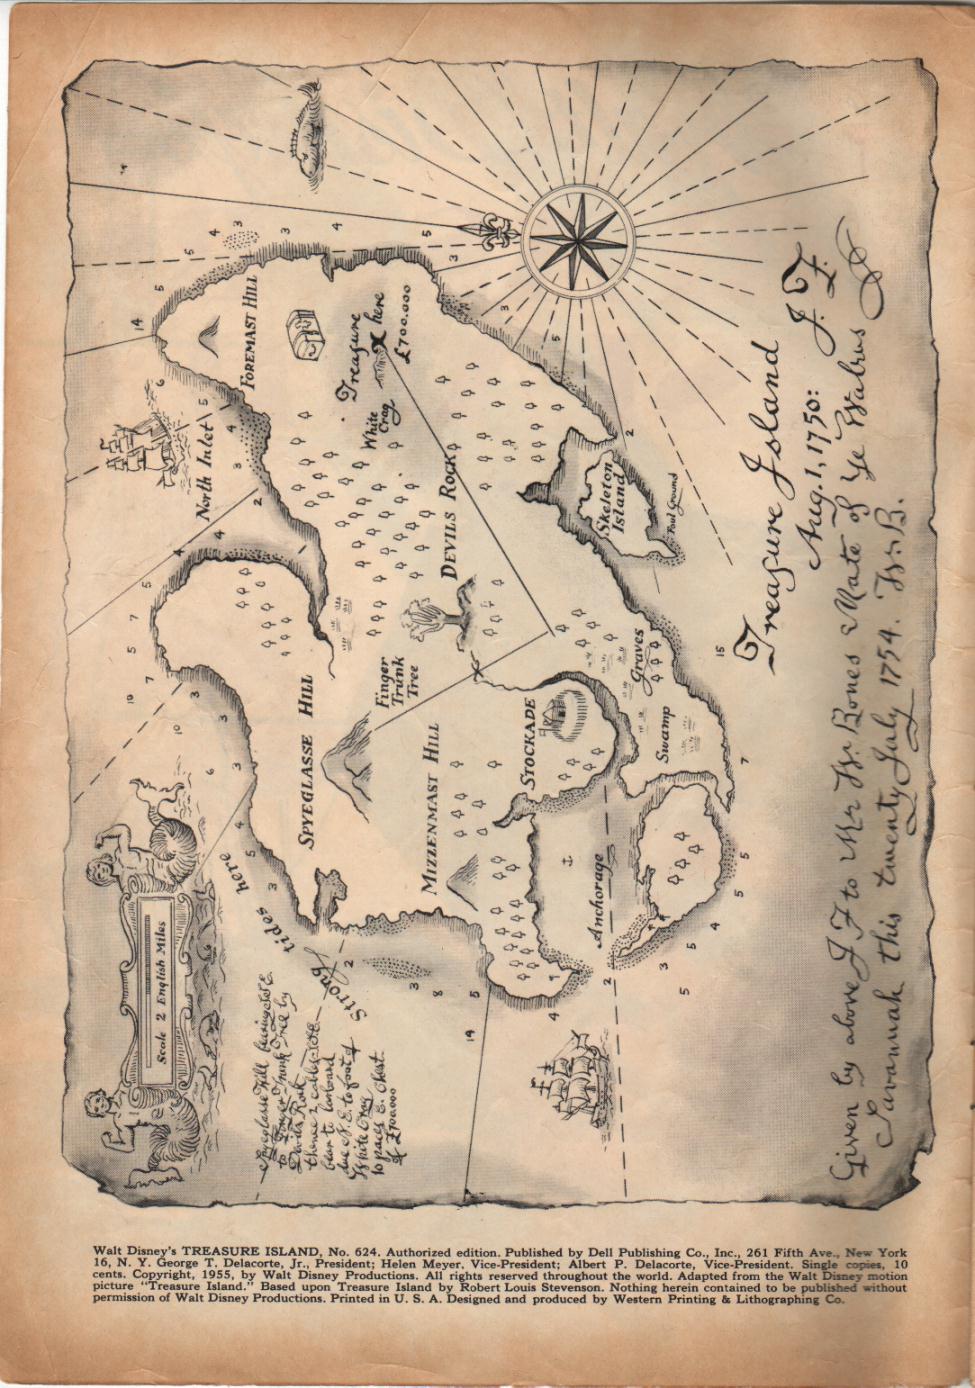 Scale 2 English Miles
Spyeglasse Hill
to Finger Trunk Tree by
Devils Rock
thence 2 cables
bear to lanboard
due N.E. to foot of
White Crag
10 paces E. Chest
of £700000
Strong tides here
North Inlet
FOREMAST HILL
Treasure
X here
£700.000
White
Crag
SPYEGLASSE HILL
Finger
Trunk
Tree
DEVILS ROCK
MIZZENMAST HILL
STOCKADE
Skeleton
Island
Foul Ground
Graves
Swamp
Anchorage
Treasure Island
Aug. 1, 1750: J. F.
Given by above J F to Mr Bones Mate of Ye Walrus
Savannah this twenty July 1754. B.
14
5
4
3
3
4
5
3
3
5
2
6
5
4
3
2
4
4
5
7
5
7
10
3
3
3
4
5
3
10
6
2
3
8
5
14
4
1
2
3
5
5
4
5
5
7
15
Walt Disney's TREASURE ISLAND, No. 624. Authorized edition. Published by Dell Publishing Co., Inc., 261 Fifth Ave., New York
16, N. Y. George T. Delacorte, Jr., President; Helen Meyer, Vice-President; Albert P. Delacorte, Vice-President. Single copies, 10
cents. Copyright, 1955, by Walt Disney Productions. All rights reserved throughout the world. Adapted from the Walt Disney motion
picture "Treasure Island." Based upon Treasure Island by Robert Louis Stevenson. Nothing herein contained to be published without
permission of Walt Disney Productions. Printed in U. S. A. Designed and produced by Western Printing & Lithographing Co.